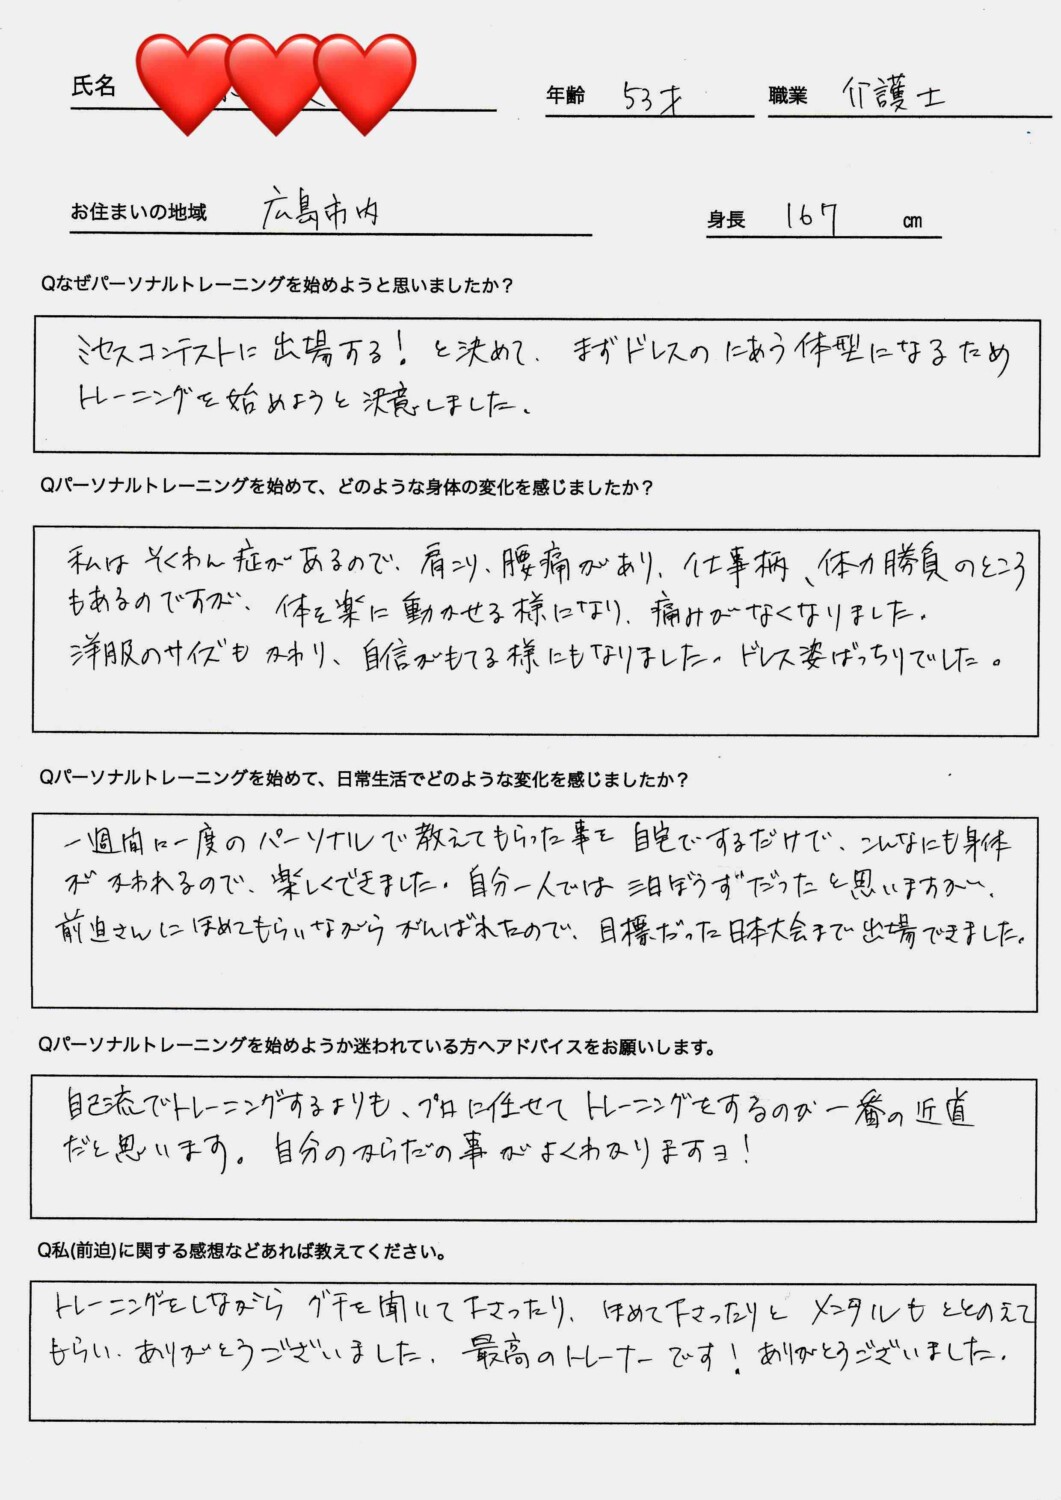 氏名
年齢 53才 職業 介護士
お住まいの地域 広島市内 身長 167 cm
Qなぜパーソナルトレーニングを始めようと思いましたか？
ミセスコンテストに出場する! と決めて、まずドレスのにあう体型になるため
トレーニングを始めようと決意しました。
Qパーソナルトレーニングを始めて、どのような身体の変化を感じましたか？
私はそくわん症があるので、肩こり、腰痛があり、仕事柄、体力勝負のところ
もあるのですが、体を楽に動かせる様になり、痛みがなくなりました。
洋服のサイズもかわり、自信がもてる様にもなりました。ドレス姿ばっちりでした。
Qパーソナルトレーニングを始めて、日常生活でどのような変化を感じましたか？
一週間に一度のパーソナルで教えてもらった事を自宅でするだけで、こんなにも身体
がかわれるので、楽しくできました。自分一人では三日ぼうずだったと思いますが、
前迫さんにほめてもらいながらがんばれたので、目標だった日本大会まで出場できました。
Qパーソナルトレーニングを始めようか迷われている方へアドバイスをお願いします。
自己流でトレーニングするよりも、プロに任せてトレーニングをするのが一番の近道
だと思います。自分のからだの事がよくわかりますヨ!
Q私(前迫)に関する感想などあれば教えてください。
トレーニングをしながらグチを聞いて下さったり、ほめて下さったりとメンタルもととのえて
もらい、ありがとうございました。最高のトレーナーです! ありがとうございました。